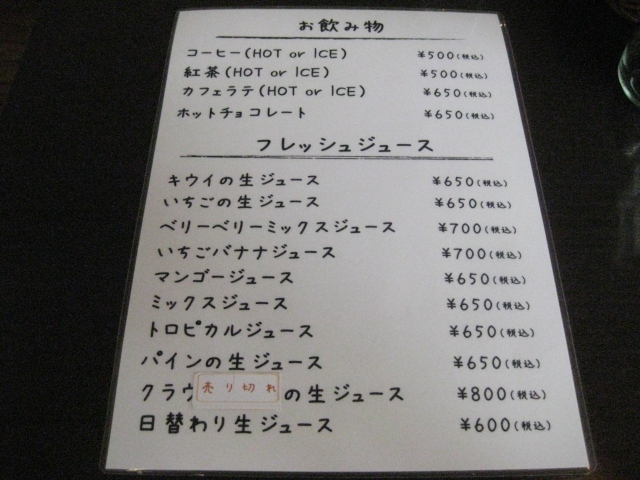 お飲み物
コーヒー(HOT or ICE) ¥500(税込)
紅茶(HOT or ICE) ¥500(税込)
カフェラテ(HOT or ICE) ¥650(税込)
ホットチョコレート ¥650(税込)
フレッシュジュース
キウイの生ジュース ¥650(税込)
いちごの生ジュース ¥650(税込)
ベリーベリーミックスジュース ¥700(税込)
いちごバナナジュース ¥700(税込)
マンゴージュース ¥650(税込)
ミックスジュース ¥650(税込)
トロピカルジュース ¥650(税込)
パインの生ジュース ¥650(税込)
クラウ 売り切れ の生ジュース ¥800(税込)
日替わり生ジュース ¥600(税込)